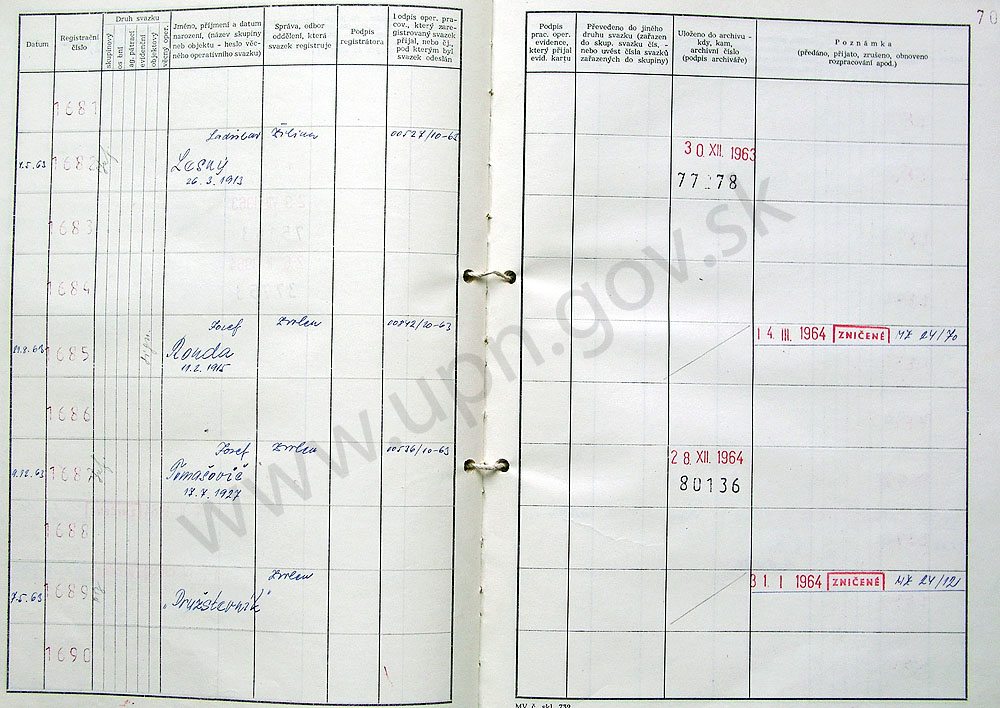 70
Datum
Registrační
číslo
Druh svazku
skupinový
os ıní
ag. pátrací
evidenční
objektový
věcný oper.
Jméno, příjmení a datum
narození, (název skupiny
neb objektu - heslo věc-
ného operativního svazku)
Správa, odbor
oddělení, která
svazek registruje
Podpis
registrátora
Podpis oper. pra-
cov., který zare-
gistrovaný svazek
přijal, nebo čj.,
pod kterým byl
svazek odeslán
Podpis
prac. oper.
evidence,
který přijal
evid. kartu
Převedeno do jiného
druhu svazku (zařazen
do skup. svazku čís. -
nebo uvést čísla svazků
zařazených do skupiny)
Uloženo do archivu -
kdy, kam,
archivní číslo
(podpis archiváře)
Poznámka
(předáno, přijato, zrušeno, obnoveno
rozpracování apod.)
1681
1682
Ladislav
Lesný
26. 3. 1913
Žilina
00527/10-63
30. XII. 1963
77278
1683
1684
1685
Jozef
Ronda
11.2. 1915
Zvolen
00842/20-63
14. III. 1964 ZNIČENÉ NZ 24/70
1686
9.12.63
1687
Jozef
Tomašovič
17.7.1927
Zvolen
00536/10-63
28. XII. 1964
80136
1688
7.5.63
1689
"Družstevník"
Zvolen
31. I. 1964 ZNIČENÉ NZ 24/121
1690
MV č. skl. 732
www.upn.gov.sk